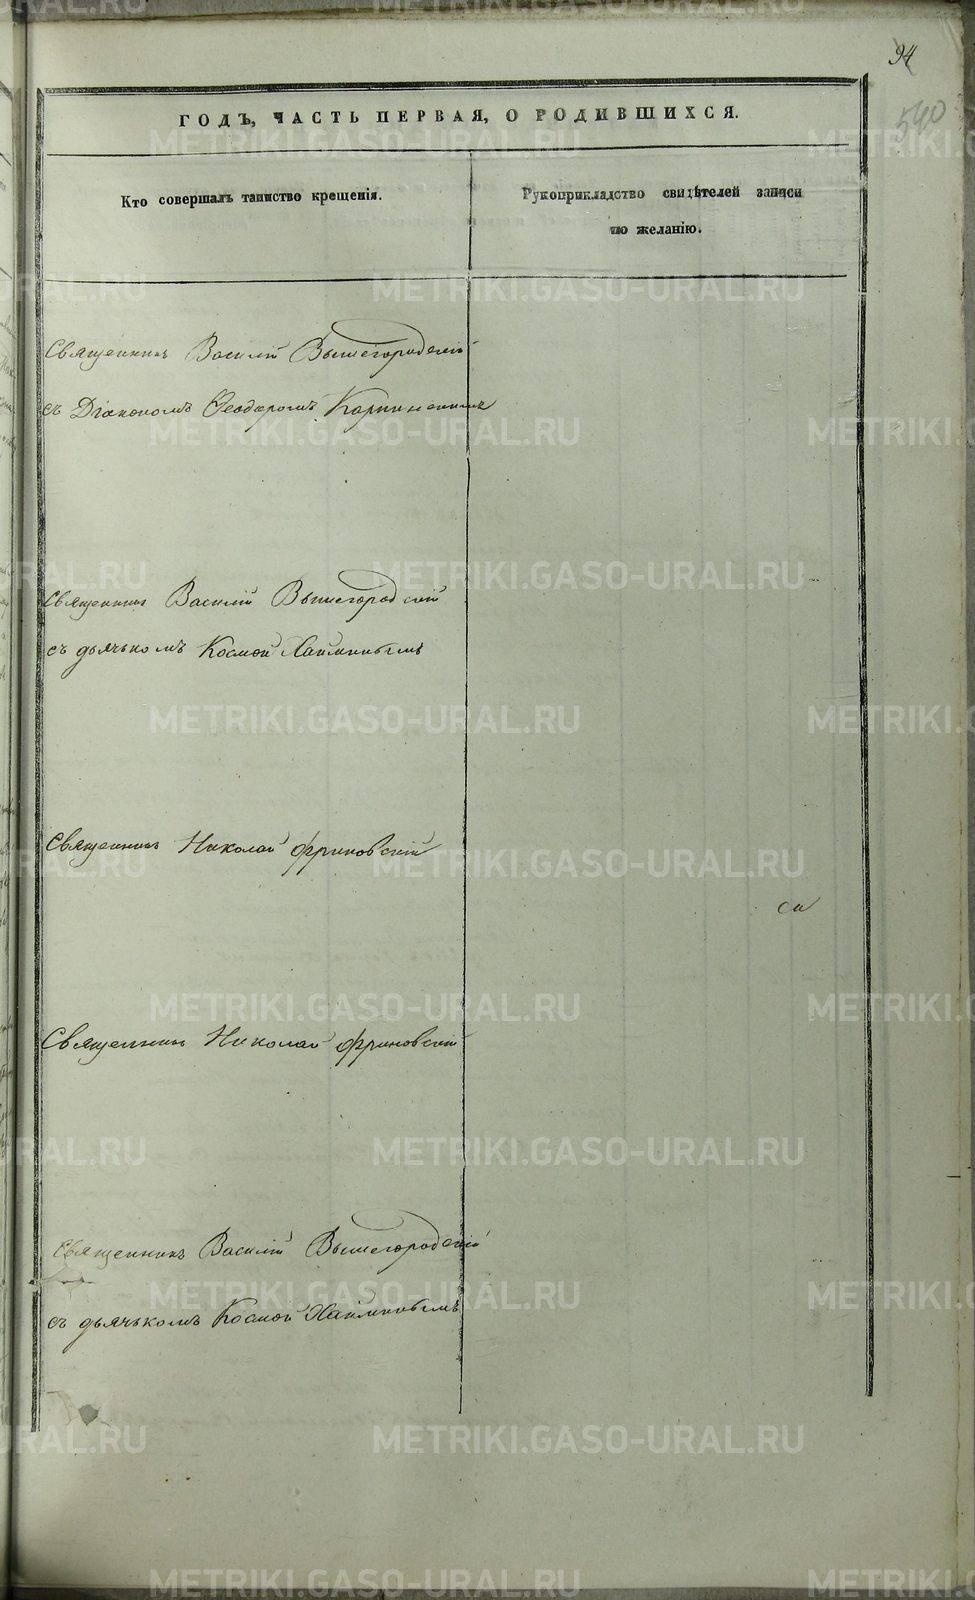 94
540
ГОДЪ, ЧАСТЬ ПЕРВАЯ, О РОДИВШИХСЯ.
Кто совершалъ таинство крещенія.
Рукоприкладство свидѣтелей записи
по желанію.
Священникъ Василій Вышегородскій
съ Діакономъ Ѳеодоромъ Карпинскимъ
Священникъ Василій Вышегородскій
съ дьячькомъ Космой Хайминымъ
Священникъ Николай Фриновскій
Священникъ Николай Фриновскій
Священникъ Василій Вышегородскій
съ дьячькомъ Космой Хайминымъ
METRIKI.GASO-URAL.RU